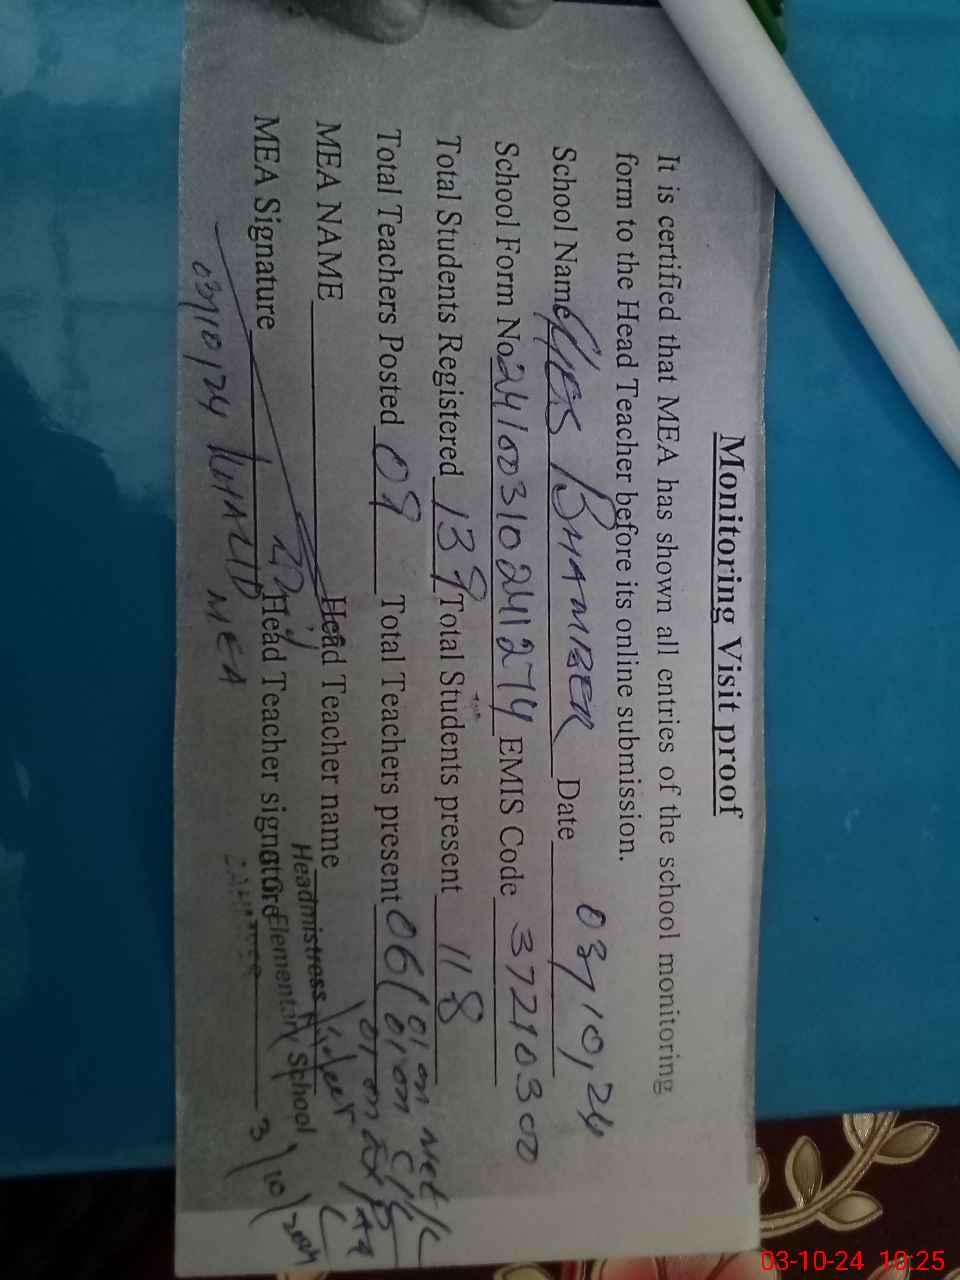 Monitoring Visit proof
It is certified that MEA has shown all entries of the school monitoring
form to the Head Teacher before its online submission.
School Name GGES BHAMBER Date 03/10/24
School Form No 24100310241274 EMIS Code 37210300
Total Students Registered 139 Total Students present 118
Total Teachers Posted 09 Total Teachers present 06 (01 on Met/L
01 on C/L
01 on
MEA NAME Head Teacher name
Headmistress
MEA Signature Head Teacher signature
Elementary School
3/10/2024
03/10/24 KHALID MEA
03-10-24 10:25